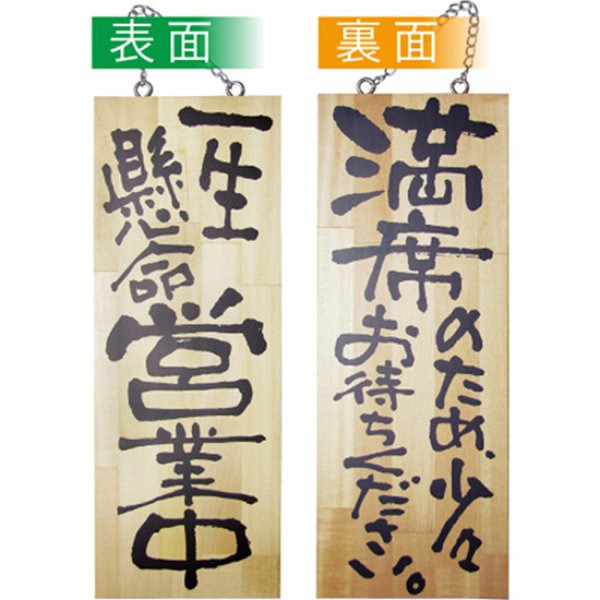 表面
一生
懸命
営業中
裏面
満席のため、少々
お待ちください。